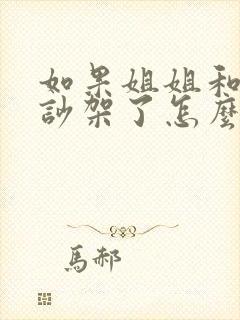 如果姐姐和
訬架了怎麼
馬郝